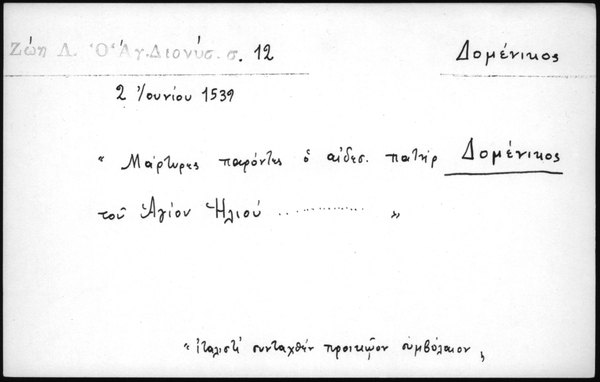 Ζώη Λ. Ὁ Ἅγ. Διονύσ. σ. 12
Δομένικος
2 Ἰουνίου 1539
" Μάρτυρες παρόντες ὁ αἰδεσ. πατὴρ Δομένικος
τοῦ Ἁγίου Ἠλιοῦ .............. "
" ἰταλιστὶ συνταχθὲν προικῷον συμβόλαιον,